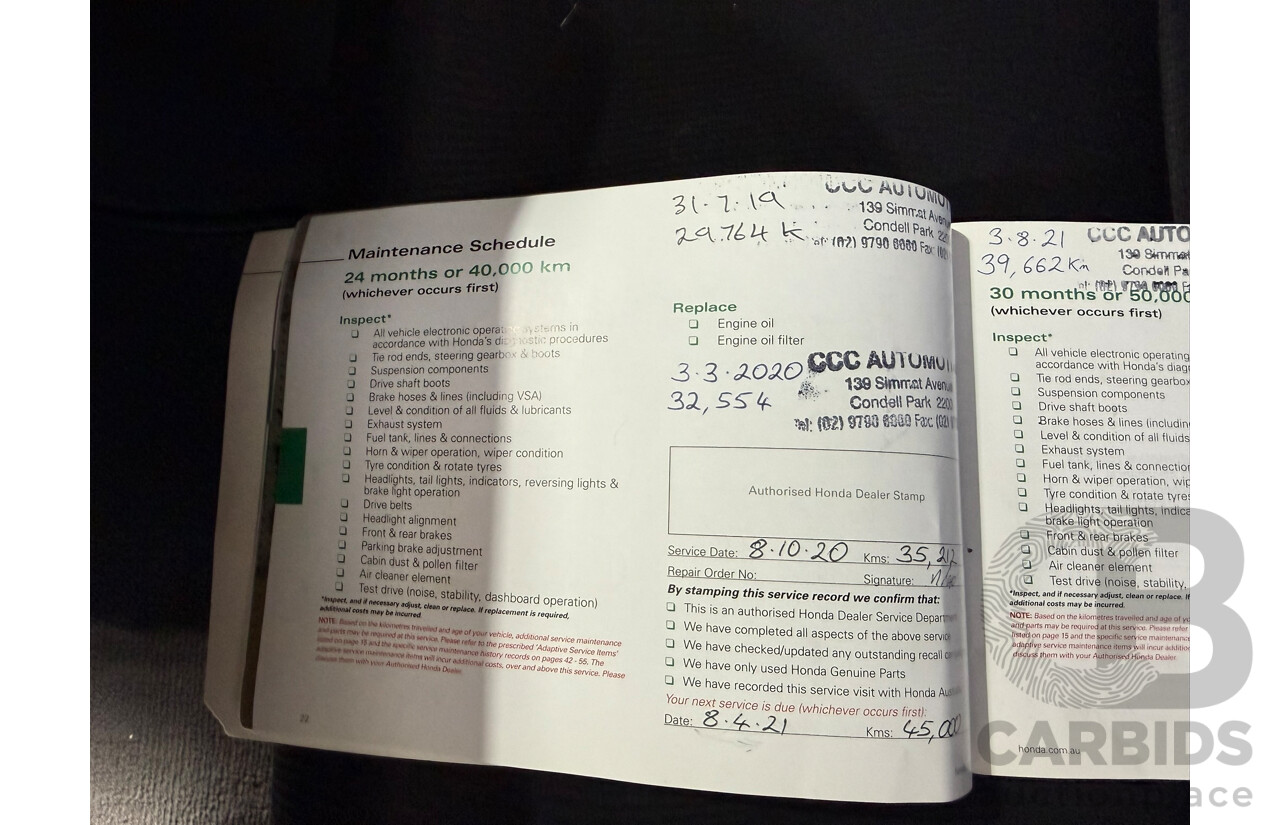 Maintenance Schedule
24 months or 40,000 km
(whichever occurs first)
Inspect*
❏ All vehicle electronic operating systems in
accordance with Honda's diagnostic procedures
❏ Tie rod ends, steering gearbox & boots
❏ Suspension components
❏ Drive shaft boots
❏ Brake hoses & lines (including VSA)
❏ Level & condition of all fluids & lubricants
❏ Exhaust system
❏ Fuel tank, lines & connections
❏ Horn & wiper operation, wiper condition
❏ Tyre condition & rotate tyres
❏ Headlights, tail lights, indicators, reversing lights &
brake light operation
❏ Drive belts
❏ Headlight alignment
❏ Front & rear brakes
❏ Parking brake adjustment
❏ Cabin dust & pollen filter
❏ Air cleaner element
❏ Test drive (noise, stability, dashboard operation)
*Inspect, and if necessary adjust, clean or replace. If replacement is required,
additional costs may be incurred.
NOTE: Based on the kilometres travelled and age of your vehicle, additional service maintenance
and parts may be required at this service. Please refer to the prescribed 'Adaptive Service Items'
listed on page 15 and the specific service maintenance history records on pages 42 - 55. The
adaptive service maintenance items will incur additional costs, over and above this service. Please
discuss them with your Authorised Honda Dealer.
22
31·7·19
29.764 K
CCC AUTOMO
139 Simmat Aven
Condell Park 220
Tel: (02) 9790 6000 Fax: (02)
Replace
❏ Engine oil
❏ Engine oil filter
3·3·2020
32,554
CCC AUTOMO
139 Simmat Avenu
Condell Park 2200
Tel: (02) 9790 6000 Fax: (02)
Authorised Honda Dealer Stamp
Service Date: 8·10·20 Kms: 35,212
Repair Order No: Signature:
By stamping this service record we confirm that:
❏ This is an authorised Honda Dealer Service Departm
❏ We have completed all aspects of the above service
❏ We have checked/updated any outstanding recall
❏ We have only used Honda Genuine Parts
❏ We have recorded this service visit with Honda Aus
Your next service is due (whichever occurs first):
Date: 8·4·21 Kms: 45,000
3·8·21
39,662 Km
CCC AUTO
139 Simmat
Condell Pa
30 months or 50,000
(whichever occurs first)
Inspect*
❏ All vehicle electronic operating
accordance with Honda's diagn
❏ Tie rod ends, steering gearbox
❏ Suspension components
❏ Drive shaft boots
❏ Brake hoses & lines (includin
❏ Level & condition of all fluids
❏ Exhaust system
❏ Fuel tank, lines & connection
❏ Horn & wiper operation, wip
❏ Tyre condition & rotate tyres
❏ Headlights, tail lights, indica
brake light operation
❏ Front & rear brakes
❏ Cabin dust & pollen filter
❏ Air cleaner element
❏ Test drive (noise, stability,
*Inspect, and if necessary adjust, clean or replace. If
additional costs may be incurred.
NOTE: Based on the kilometres travelled and age of yo
and parts may be required at this service. Please refer
listed on page 15 and the specific service maintenance
adaptive service maintenance items will incur addition
discuss them with your Authorised Honda Dealer.
honda.com.au
CARBIDS